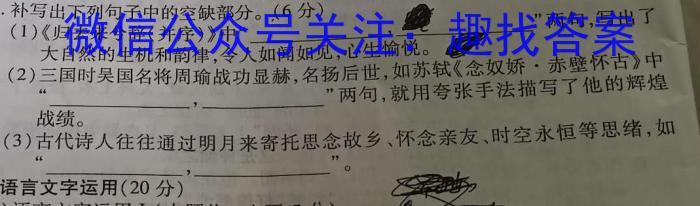 .补写出下列句子中的空缺部分。(6分)
(1)《归去来兮辞(并序)》中“ ， ”两句,写出了
大自然的生机和韵律,令人如闻如见,心生愉悦。
微信公众号关注：趣找答案
(2)三国时吴国名将周瑜战功显赫,名扬后世,如苏轼《念奴娇·赤壁怀古》中
“ , ”两句,就用夸张手法描写了他的辉煌
战绩。
(3)古代诗人往往通过明月来寄托思念故乡、怀念亲友、时空永恒等思绪,如
“ , ”。
语言文字运用(20分)